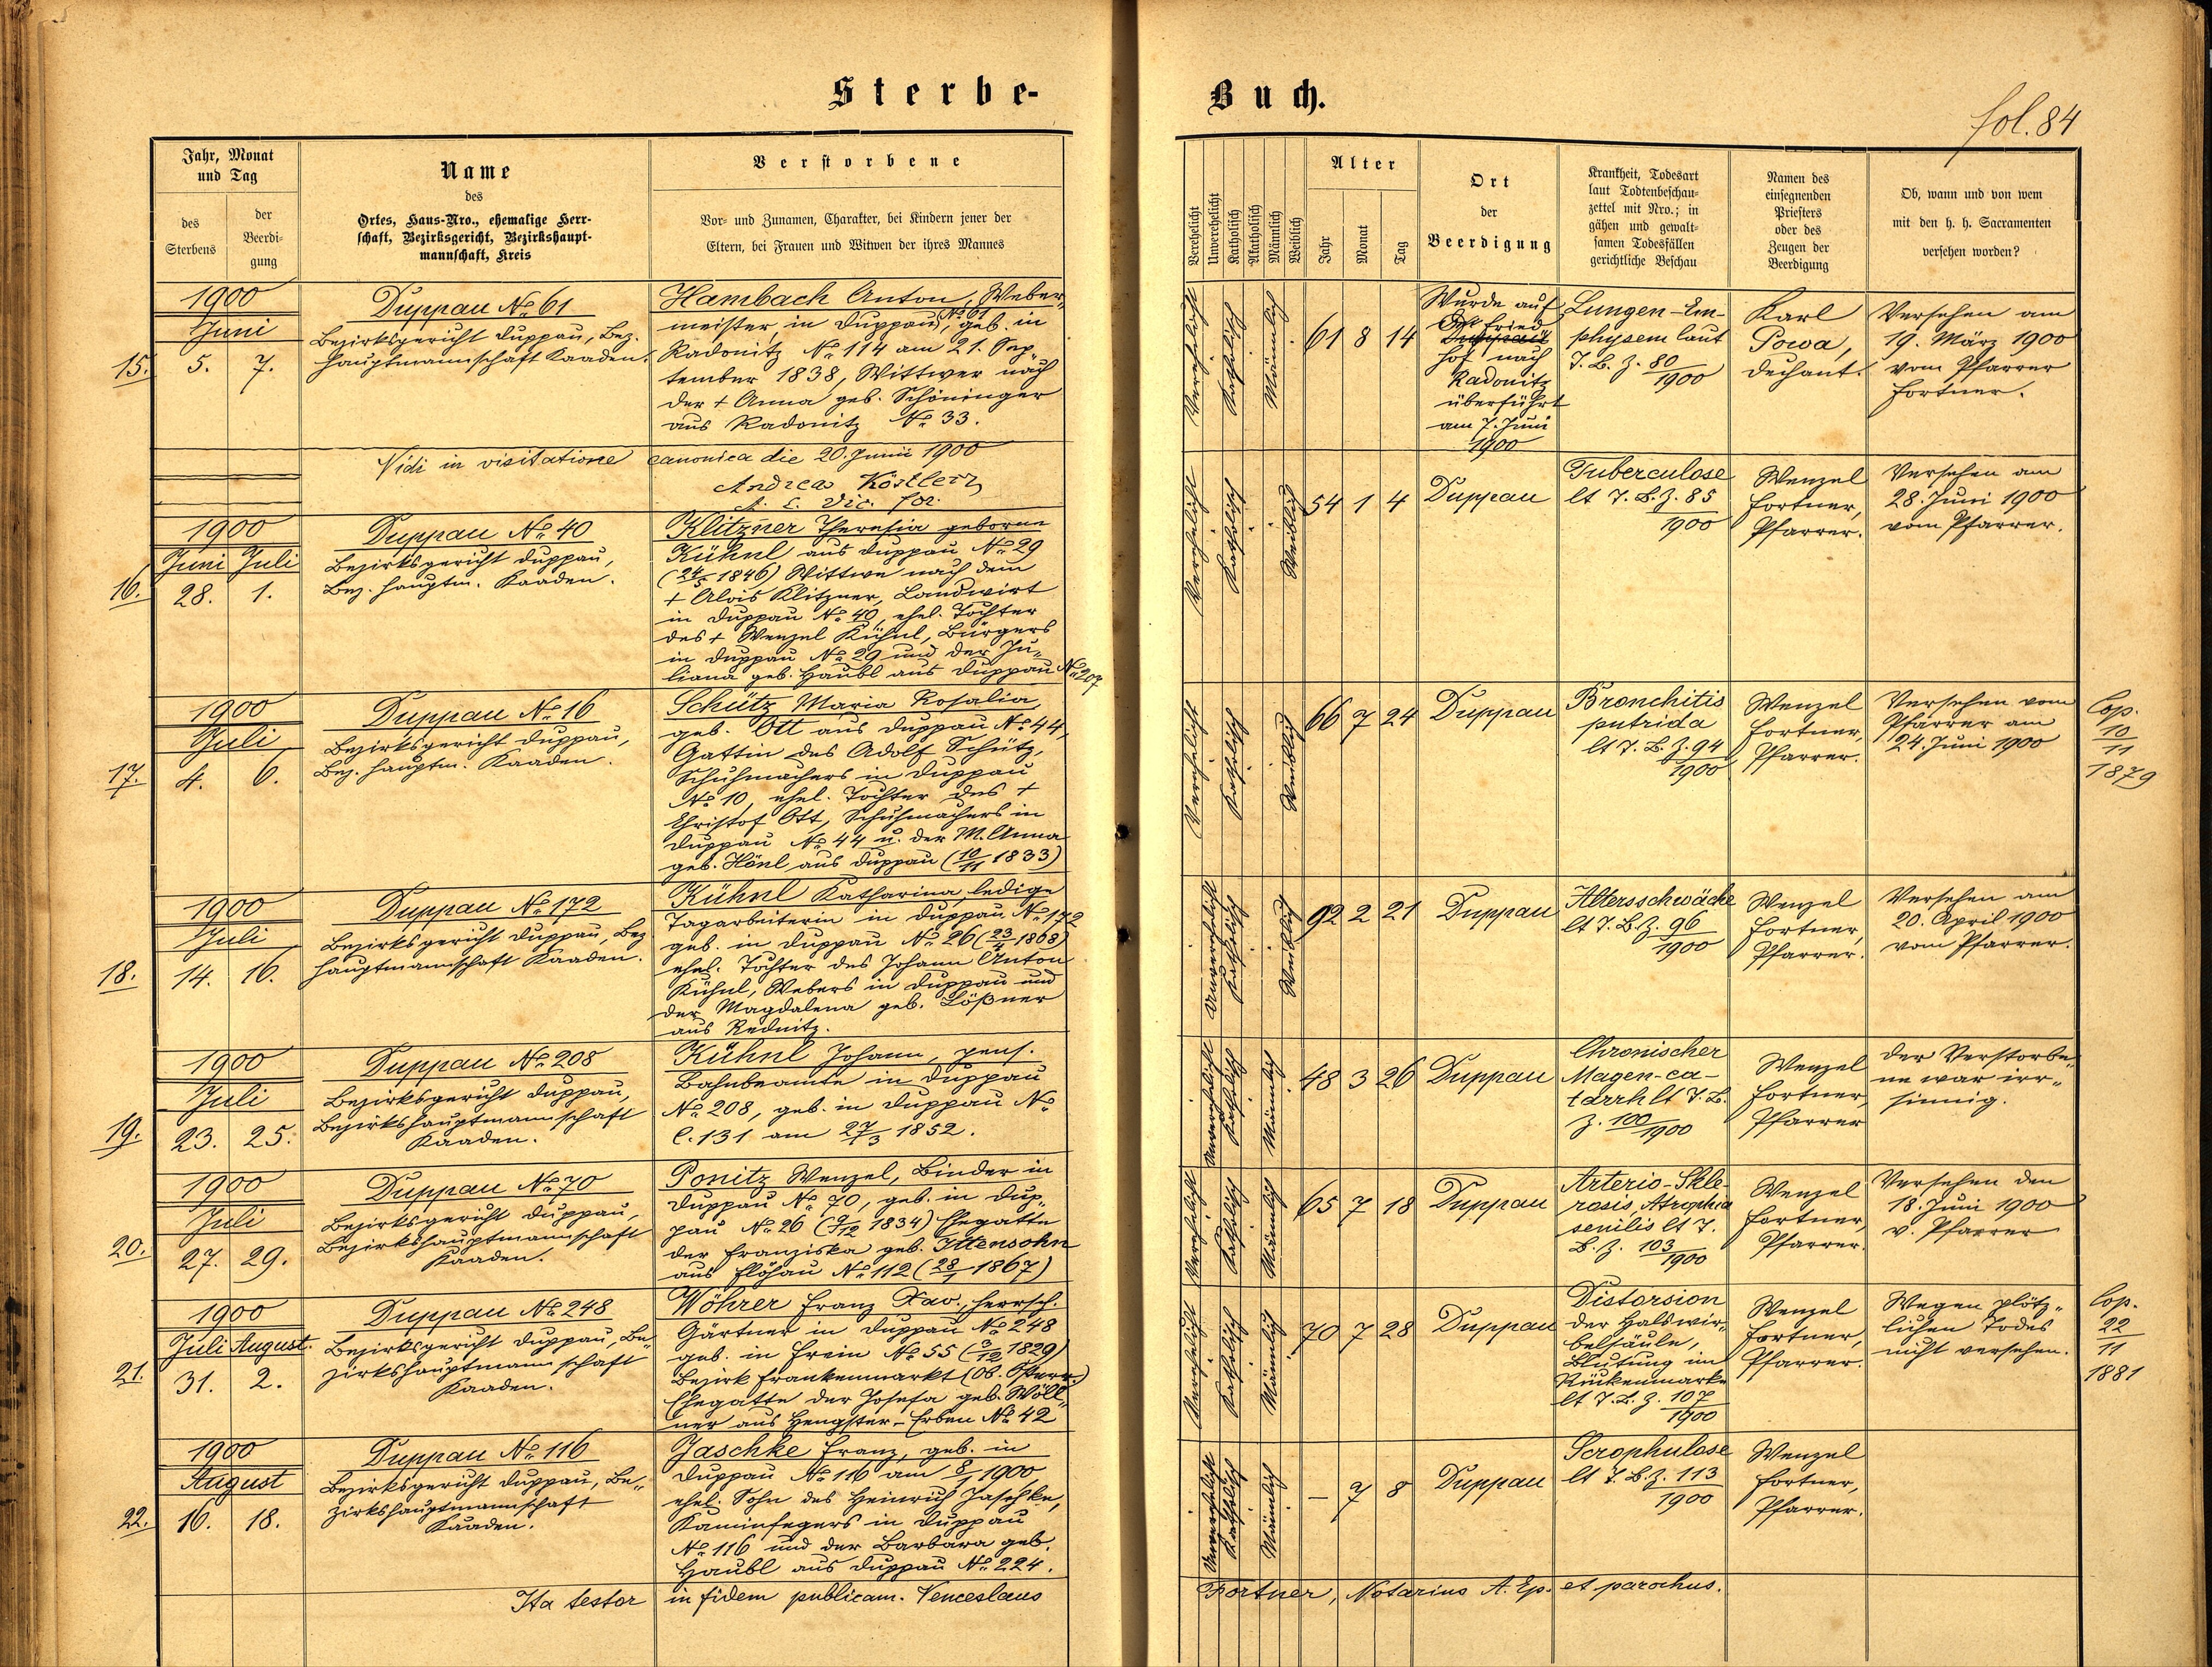 Sterbe-
Buch.
fol. 84
Jahr, Monat
und Tag
des
Sterbens
der
Beerdi-
gung
Name
des
Ortes, Haus-Nro., ehemalige Herr-
schaft, Bezirksgericht, Bezirkshaupt-
mannschaft, Kreis
Verstorbene
Vor- und Zunamen, Charakter, bei Kindern jener der
Eltern, bei Frauen und Witwen der ihres Mannes
Verehelicht
Unverehelicht
Katholisch
Akatholisch
Männlich
Weiblich
Alter
Jahr
Monat
Tag
Ort
der
Beerdigung
Krankheit, Todesart
laut Todtenbeschau-
zettel mit Nro.; in
gähen und gewalt-
samen Todesfällen
gerichtliche Beschau
Namen des
einsegnenden
Priesters
oder des
Zeugen der
Beerdigung
Ob, wann und von wem
mit den h. h. Sacramenten
versehen worden?
15.
1900
Juni
5. 7.
Duppau No 61
Bezirksgericht Duppau, Bez.
hauptmannschaft Kaaden.
Hambach Anton, Weber-
meister in Duppau No 61, geb. in
Radonitz No 114 am 21. Sep-
tember 1838, Wittwer nach
der + Anna geb. Schöninger
aus Radonitz No 33.
Verehelicht
Katholisch
Männlich
61 8 14
Wurde auf
den Fried
hof nach
Radonitz
überführt
am 7. Juni
1900
Lungen-Em-
physem laut
T. B. Z. 80/1900
Karl
Powa,
Dechant.
Versehen am
19. März 1900
vom Pfarrer
Fortner.
Vidi in visitatione canonica die 20. Junii 1900
Andreas Köstler
A. E. Vic. for.
16.
1900
Juni Juli
28. 1.
Duppau No 40
Bezirksgericht Duppau,
Bez. hauptm. Kaaden.
Klitzner Theresia geborne
Kühnl aus Duppau No 29
(24/5 1846) Wittwe nach dem
+ Alois Klitzner, Landwirt
in Duppau No 40, ehel. Tochter
des + Wenzel Kühnl, Bürgers
in Duppau No 29 und der Ju-
liana geb. Haubl aus Duppau No 207
Verehelicht
Katholisch
Weiblich
54 1 4
Duppau
Tuberculose
lt T. B. Z. 85
1900
Wenzel
Fortner,
Pfarrer.
Versehen am
28. Juni 1900
vom Pfarrer.
17.
1900
Juli
4. 6.
Duppau No 16
Bezirksgericht Duppau,
Bez. hauptm. Kaaden.
Schütz Maria Rosalia,
geb. Ott aus Duppau No 44,
Gattin des Adolf Schütz,
Schuhmachers in Duppau
No 10, ehel. Tochter des +
Christof Ott, Schuhmachers in
Duppau No 44 u. der M. Anna
geb. Hönl aus Duppau (10/11 1833)
Verehelicht
Katholisch
Weiblich
66 7 24
Duppau
Bronchitis
putrida
lt T. B. Z. 94
1900
Wenzel
Fortner,
Pfarrer.
Versehen vom
Pfarrer am
24. Juni 1900
Cop.
10
11
1879
18.
1900
Juli
14. 16.
Duppau No 172
Bezirksgericht Duppau, Bez
hauptmannschaft Kaaden.
Kühnl Katharina, ledige
Tagarbeiterin in Duppau No 172
geb. in Duppau No 26 (23/4 1808)
ehel. Tochter des Johann Anton
Kühnl, Webers in Duppau und
der Magdalena geb. Lößner
aus Rednitz.
Unverehelicht
Katholisch
Weiblich
92 2 21
Duppau
Altersschwäche
lt T. B. Z. 96
1900
Wenzel
Fortner,
Pfarrer.
Versehen am
20. April 1900
vom Pfarrer.
19.
1900
Juli
23. 25.
Duppau No 208
Bezirksgericht Duppau,
Bezirkshauptmannschaft
Kaaden.
Kühnl Johann, pens.
Bahnbeamte in Duppau
No 208, geb. in Duppau No
C. 131 am 27/3 1852.
Unverehelicht
Katholisch
Männlich
48 3 26
Duppau
Chronischer
Magen-ca-
tarrh lt T. B.
Z. 100/1900
Wenzel
Fortner,
Pfarrer
Der Verstorbe-
ne war irr-
sinnig.
20.
1900
Juli
27. 29.
Duppau No 70
Bezirksgericht Duppau,
Bezirkshauptmannschaft
Kaaden.
Ponitz Wenzel, Binder in
Duppau No 70, geb. in Dup-
pau No 26 (9/12 1834) Ehegatte
der Franziska geb. Ittensohn
aus Flöhau No 112 (28/1 1867)
Verehelicht
Katholisch
Männlich
65 7 18
Duppau
Arterio-Skle-
rosis, Atrophia
senilis lt T.
B. Z. 103/1900
Wenzel
Fortner,
Pfarrer.
Versehen den
18. Juni 1900
v. Pfarrer
21.
1900
Juli August.
31. 2.
Duppau No 248
Bezirksgericht Duppau, Be-
zirkshauptmannschaft
Kaaden.
Wöhrer Franz Xav., herrsch.
Gärtner in Duppau No 248
geb. in Frein No 55 (3/12 1829)
Bezirk Frankenmarkt (Ob. Österr.)
Ehegatte der Josefa geb. Wöll-
ner aus Hengster-Erben No 42
Verehelicht
Katholisch
Männlich
70 7 28
Duppau
Distorsion
der Halswir-
belsäule,
Blutung im
Rückenmarke
lt T. B. Z. 107
1900
Wenzel
Fortner,
Pfarrer.
Wegen plötz-
lichen Todes
nicht versehen.
Cop.
22
11
1881
22.
1900
August
16. 18.
Duppau No 116
Bezirksgericht Duppau, Be-
zirkshauptmannschaft
Kaaden.
Jaschke Franz, geb. in
Duppau No 116 am 8/1 1900
ehel. Sohn des Heinrich Jaschke,
Kaminfegers in Duppau
No 116 und der Barbara geb.
Haubl aus Duppau No 224.
Unverehelicht
Katholisch
Männlich
– 7 8
Duppau
Scrophulose
lt T. B. Z. 113
1900
Wenzel
Fortner,
Pfarrer.
Ita testor in fidem publicam. Venceslaus
Fortner, Notarius A. Ep. et parochus.